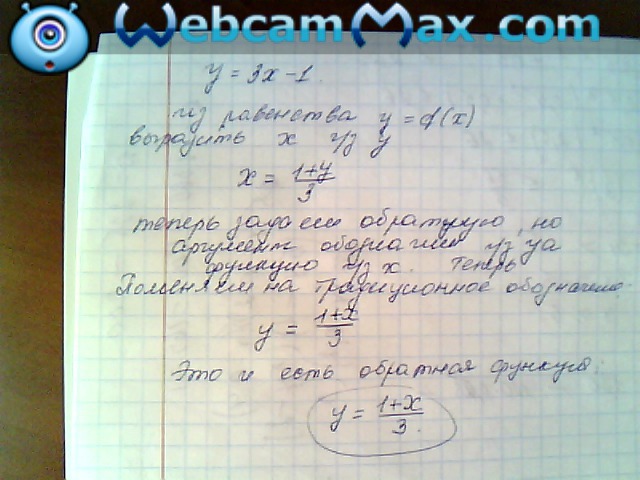 WebcamMax.com
y = 3x - 1.
из равенства y = f(x)
выразить x ч/з y
x = \frac{1+y}{3}
теперь задали обратную, но
аргумент обозначили ч/з y а
функцию ч/з x. теперь
Поменяем на традиционное обозначение
y = \frac{1+x}{3}
Это и есть обратная функция:
y = \frac{1+x}{3}.